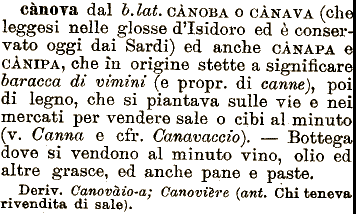 cànova dal b.lat. CÀNOBA o CÀNAVA (che
leggesi nelle glosse d'Isidoro ed è conser-
vato oggi dai Sardi) ed anche CÀNAPA e
CÀNIPA, che in origine stette a significare
baracca di vimini (e propr. di canne), poi
di legno, che si piantava sulle vie e nei
mercati per vendere sale o cibi al minuto
(v. Canna e cfr. Canavaccio). — Bottega
dove si vendono al minuto vino, olio ed
altre grasce, ed anche pane e paste.
Deriv. Canovàio-a; Canovière (ant. Chi teneva
rivendita di sale).